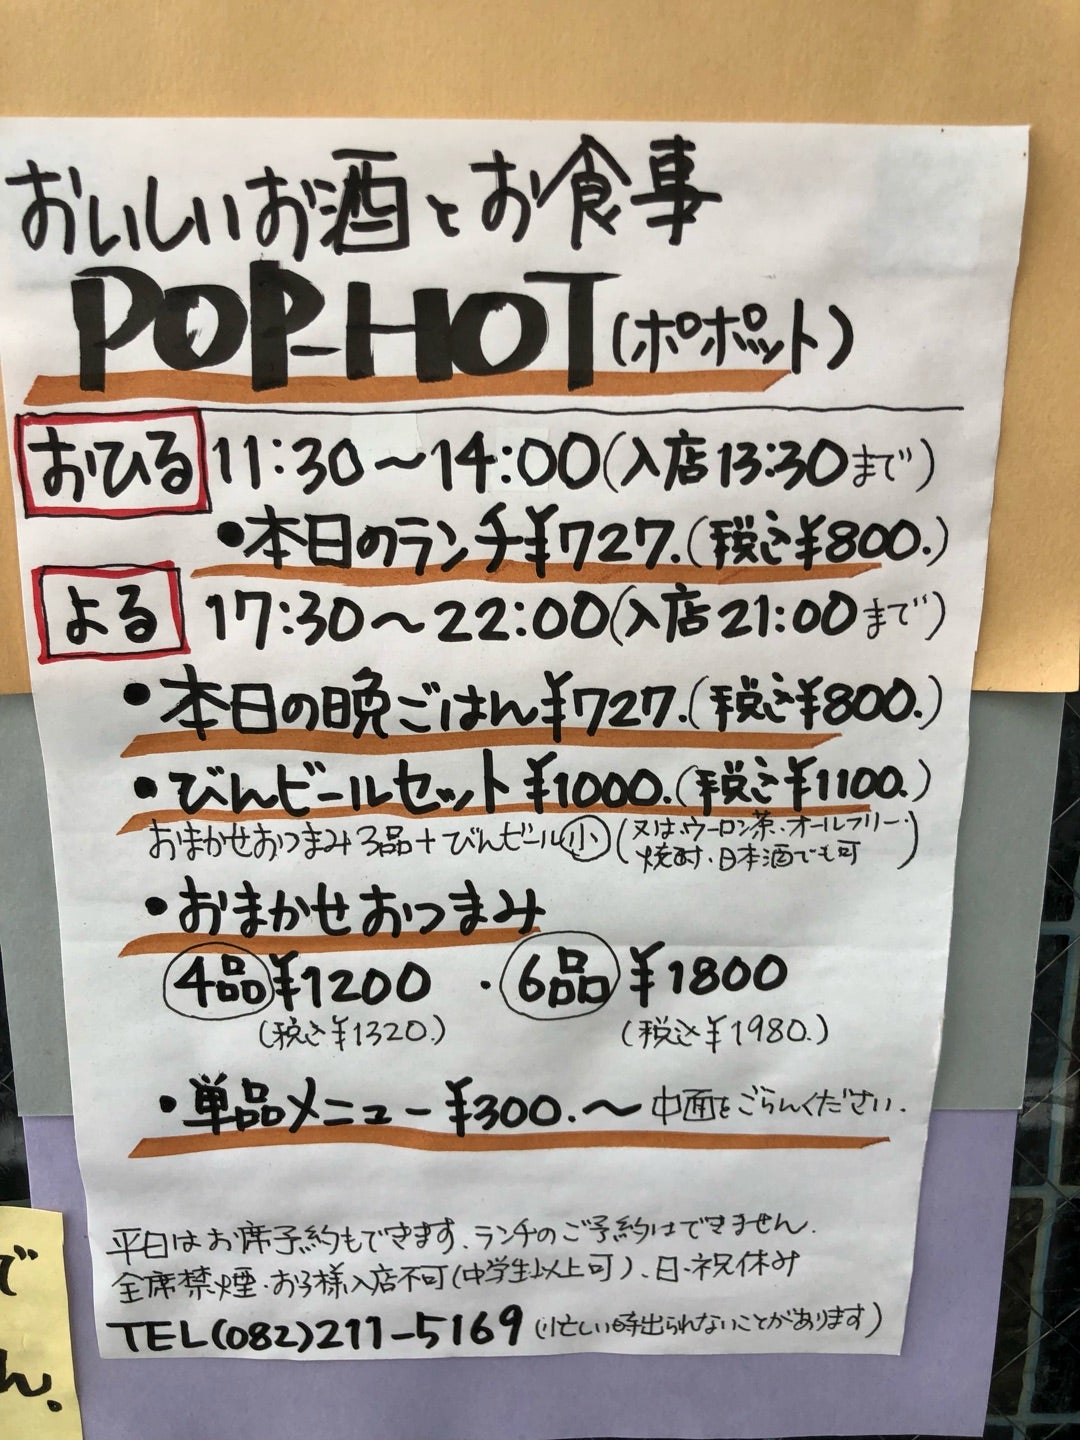 おいしいお酒とお食事
POP-HOT(ポポット)
おひる 11:30〜14:00(入店13:30まで)
•本日のランチ¥727.(税込¥800.)
よる 17:30〜22:00(入店21:00まで)
•本日の晩ごはん¥727.(税込¥800.)
•びんビールセット¥1000.(税込¥1100.)
おまかせおつまみ3品+びんビール小(又はウーロン茶・オールフリー・
焼酎・日本酒でも可)
•おまかせおつまみ
4品¥1200 ・6品¥1800
(税込¥1320.) (税込¥1980.)
•単品メニュー¥300.〜中面をごらんください.
平日はお席予約もできます、ランチのご予約はできません.
全席禁煙・お子様入店不可(中学生以上可)、日・祝休み
TEL(082)211-5169(忙しい時出られないことがあります)
で
ん.